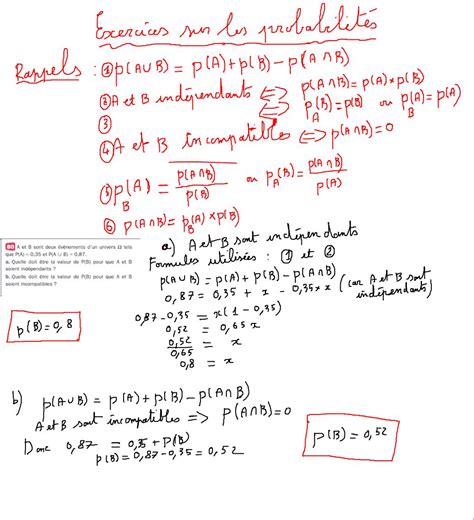 Exercices sur les probabilités
Rappels : ① p(A∪B) = p(A)+p(B) - p(A∩B)
② A et B indépendants ⟺ p(A∩B) = p(A)×p(B)
p_A(B) = p(B) ou p_B(A) = p(A)
③
④ A et B incompatibles ⟺ p(A∩B) = 0
⑤ p_B(A) = p(A∩B)/p(B) ou p_A(B) = p(A∩B)/p(A)
⑥ p(A∩B) = p_B(A) × p(B)
A et B sont deux événements d'un univers Ω tels
que P(A) = 0,35 et P(A ∪ B) = 0,87.
a. Quelle doit être la valeur de P(B) pour que A et B
soient indépendants ?
b. Quelle doit être la valeur de P(B) pour que A et B
soient incompatibles ?
a) A et B sont indépendants
Formules utilisées : ① et ②
p(A∪B) = p(A) + p(B) - p(A∩B)
0,87 = 0,35 + x - 0,35 × x (car A et B sont indépendants)
0,87 - 0,35 = x(1 - 0,35)
0,52 = 0,65 x
0,52/0,65 = x
0,8 = x
p(B) = 0,8
b) p(A∪B) = p(A) + p(B) - p(A∩B)
A et B sont incompatibles ⟹ p(A∩B) = 0
Donc 0,87 = 0,35 + p(B)
p(B) = 0,87 - 0,35 = 0,52
p(B) = 0,52